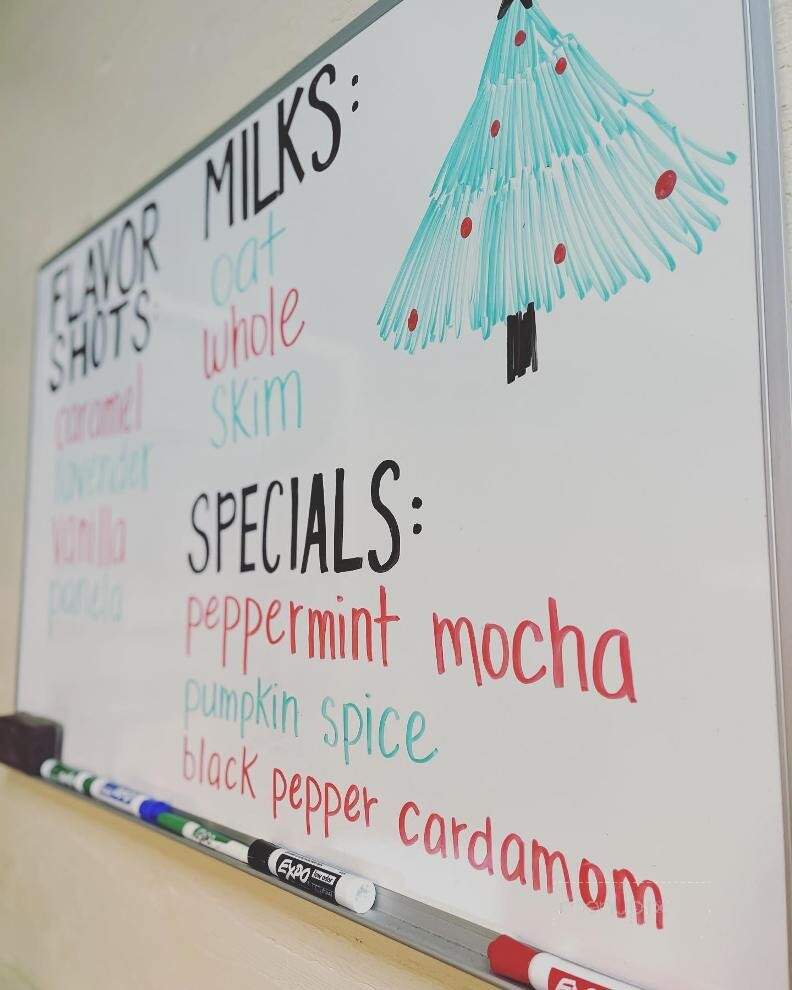 FLAVOR
SHOTS:
caramel
lavender
vanilla
panela
MILKS:
oat
whole
skim
SPECIALS:
peppermint mocha
pumpkin spice
black pepper cardamom
EXPO
EXPO
EXPO